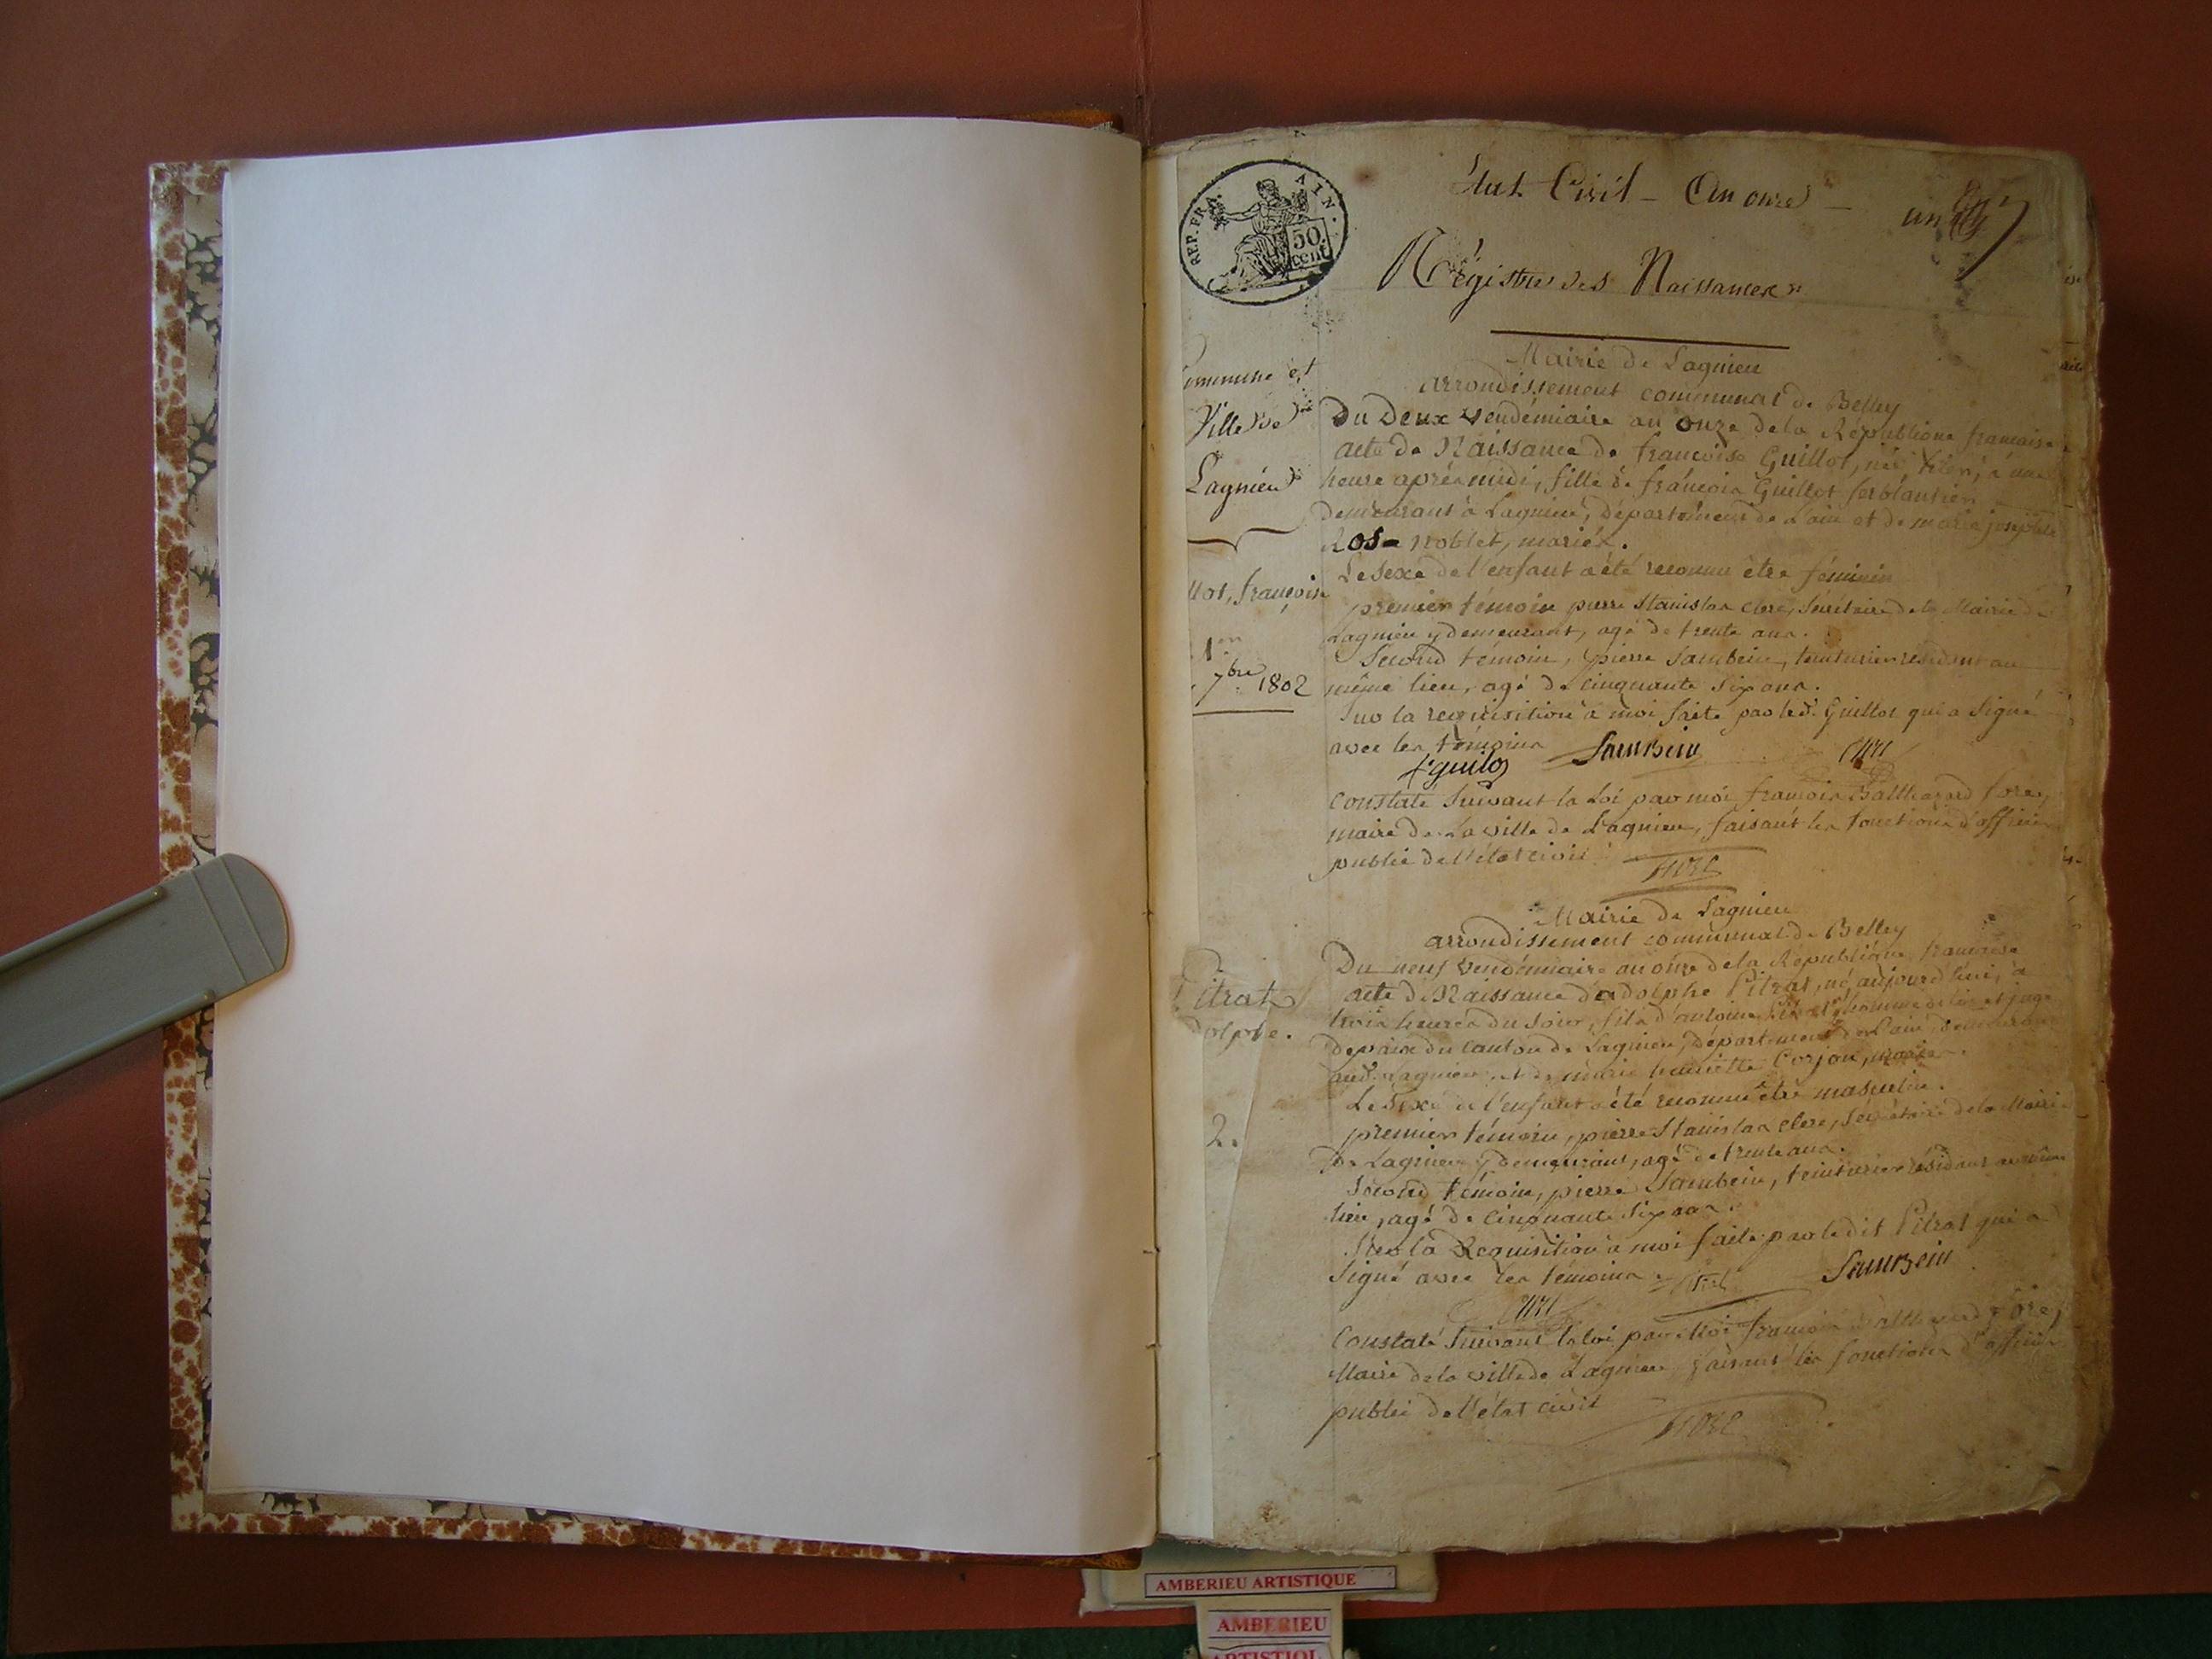 REP. FRA. AIN.
50
cent.
État Civil - An onze -
un
Régistre des Naissances
Commune et
Ville de
Lagnieu
Mairie de Lagnieu
arrondissement communal de Belley
Du Deux vendémiaire an onze de la République francaise
acte de Naissance de francoise Guillot, née hier, à une
heure après midi, fille de françois Guillot ferblantier
demeurant à Lagnieu, département de l'ain et de marie josephte
Rose noblet, mariés.
llot, françoise
1er
7bre 1802
Le sexe de l'enfant a été reconnu être féminin
premier témoin pierre stanislas clerc, sécrétaire de la Mairie de
Lagnieu y demeurant, agé de trente ans.
Second témoin, pierre Saunbein, teinturier résidant au
même lieu, agé de cinquante six ans.
Sur la requisition à moi faite par led. Guillot qui a signé
avec les témoins
f. guilo Saunbein
Constaté suivant la Loi par moi françois Balthazard fore,
maire de La ville de Lagnieu, faisant les fonctions d'officier
public de l'état civil
fore
Mairie de Lagnieu
arrondissement communal de Belley
Du neuf vendémiaire an onze de la République francaise
Pitrat
dolphe.
2.
acte de Naissance d'adolphe Pitrat, né aujourd'hui, à
trois heures du soir, fils d'antoine Pitrat homme de loi et juge
de paix du canton de Lagnieu, département de l'ain, demeurant
aud. Lagnieu et de marie henriette Corjon, mariés.
Le sexe de l'enfant a été reconnu être masculin.
premier témoin, pierre Stanislas clerc, sécrétaire de la Mairie
de Lagnieu y demeurant, agé de trente ans.
Second témoin, pierre Saunbein, teinturier résidant au même
lieu, agé de cinquante six ans.
Sur la Requisition à moi faite par ledit Pitrat qui a
signé avec les témoins. Saunbein
Constaté suivant la loi par Moi françois Balthazard fore,
Maire de la ville de Lagnieu, faisant les fonctions d'officier
public de l'état civil
fore
AMBERIEU ARTISTIQUE
AMBERIEU